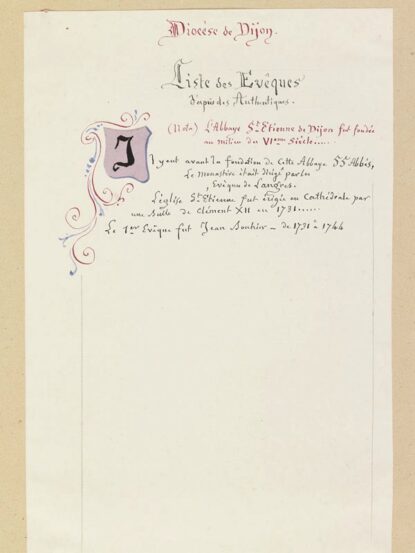 Diocèse de Dijon.
Liste des Evêques
d'après des Authentiques.
(Nota) L'Abbaye St. Etienne de Dijon fut fondée
au milieu du VIème Siècle.....
Il y eut avant la fondation de cette Abbaye 55 Abbés,
Le monastère était dirigé par le
, Evêque de Langres.
L'église St. Etienne fut érigée en Cathédrale par
une Bulle de Clément XII en 1731.....
Le 1er Evêque fut Jean Bouhier _ de 1731 à 1744